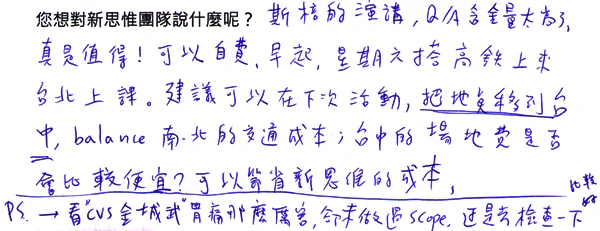 您想對新思惟團隊說什麼呢？ 斯棓的演講，Q/A含金量太高了，
真是值得！可以自費、早起，星期六搭高鐵上來
台北上課。建議可以在下次活動，把地點移到台
中，balance 南-北的交通成本；台中的場地費是否
會比較便宜？可以節省新思惟的成本，
P.S. → 看"CVS金城武"胃痛那麼厲害，卻未做過scope，還是去檢查一下
比較好